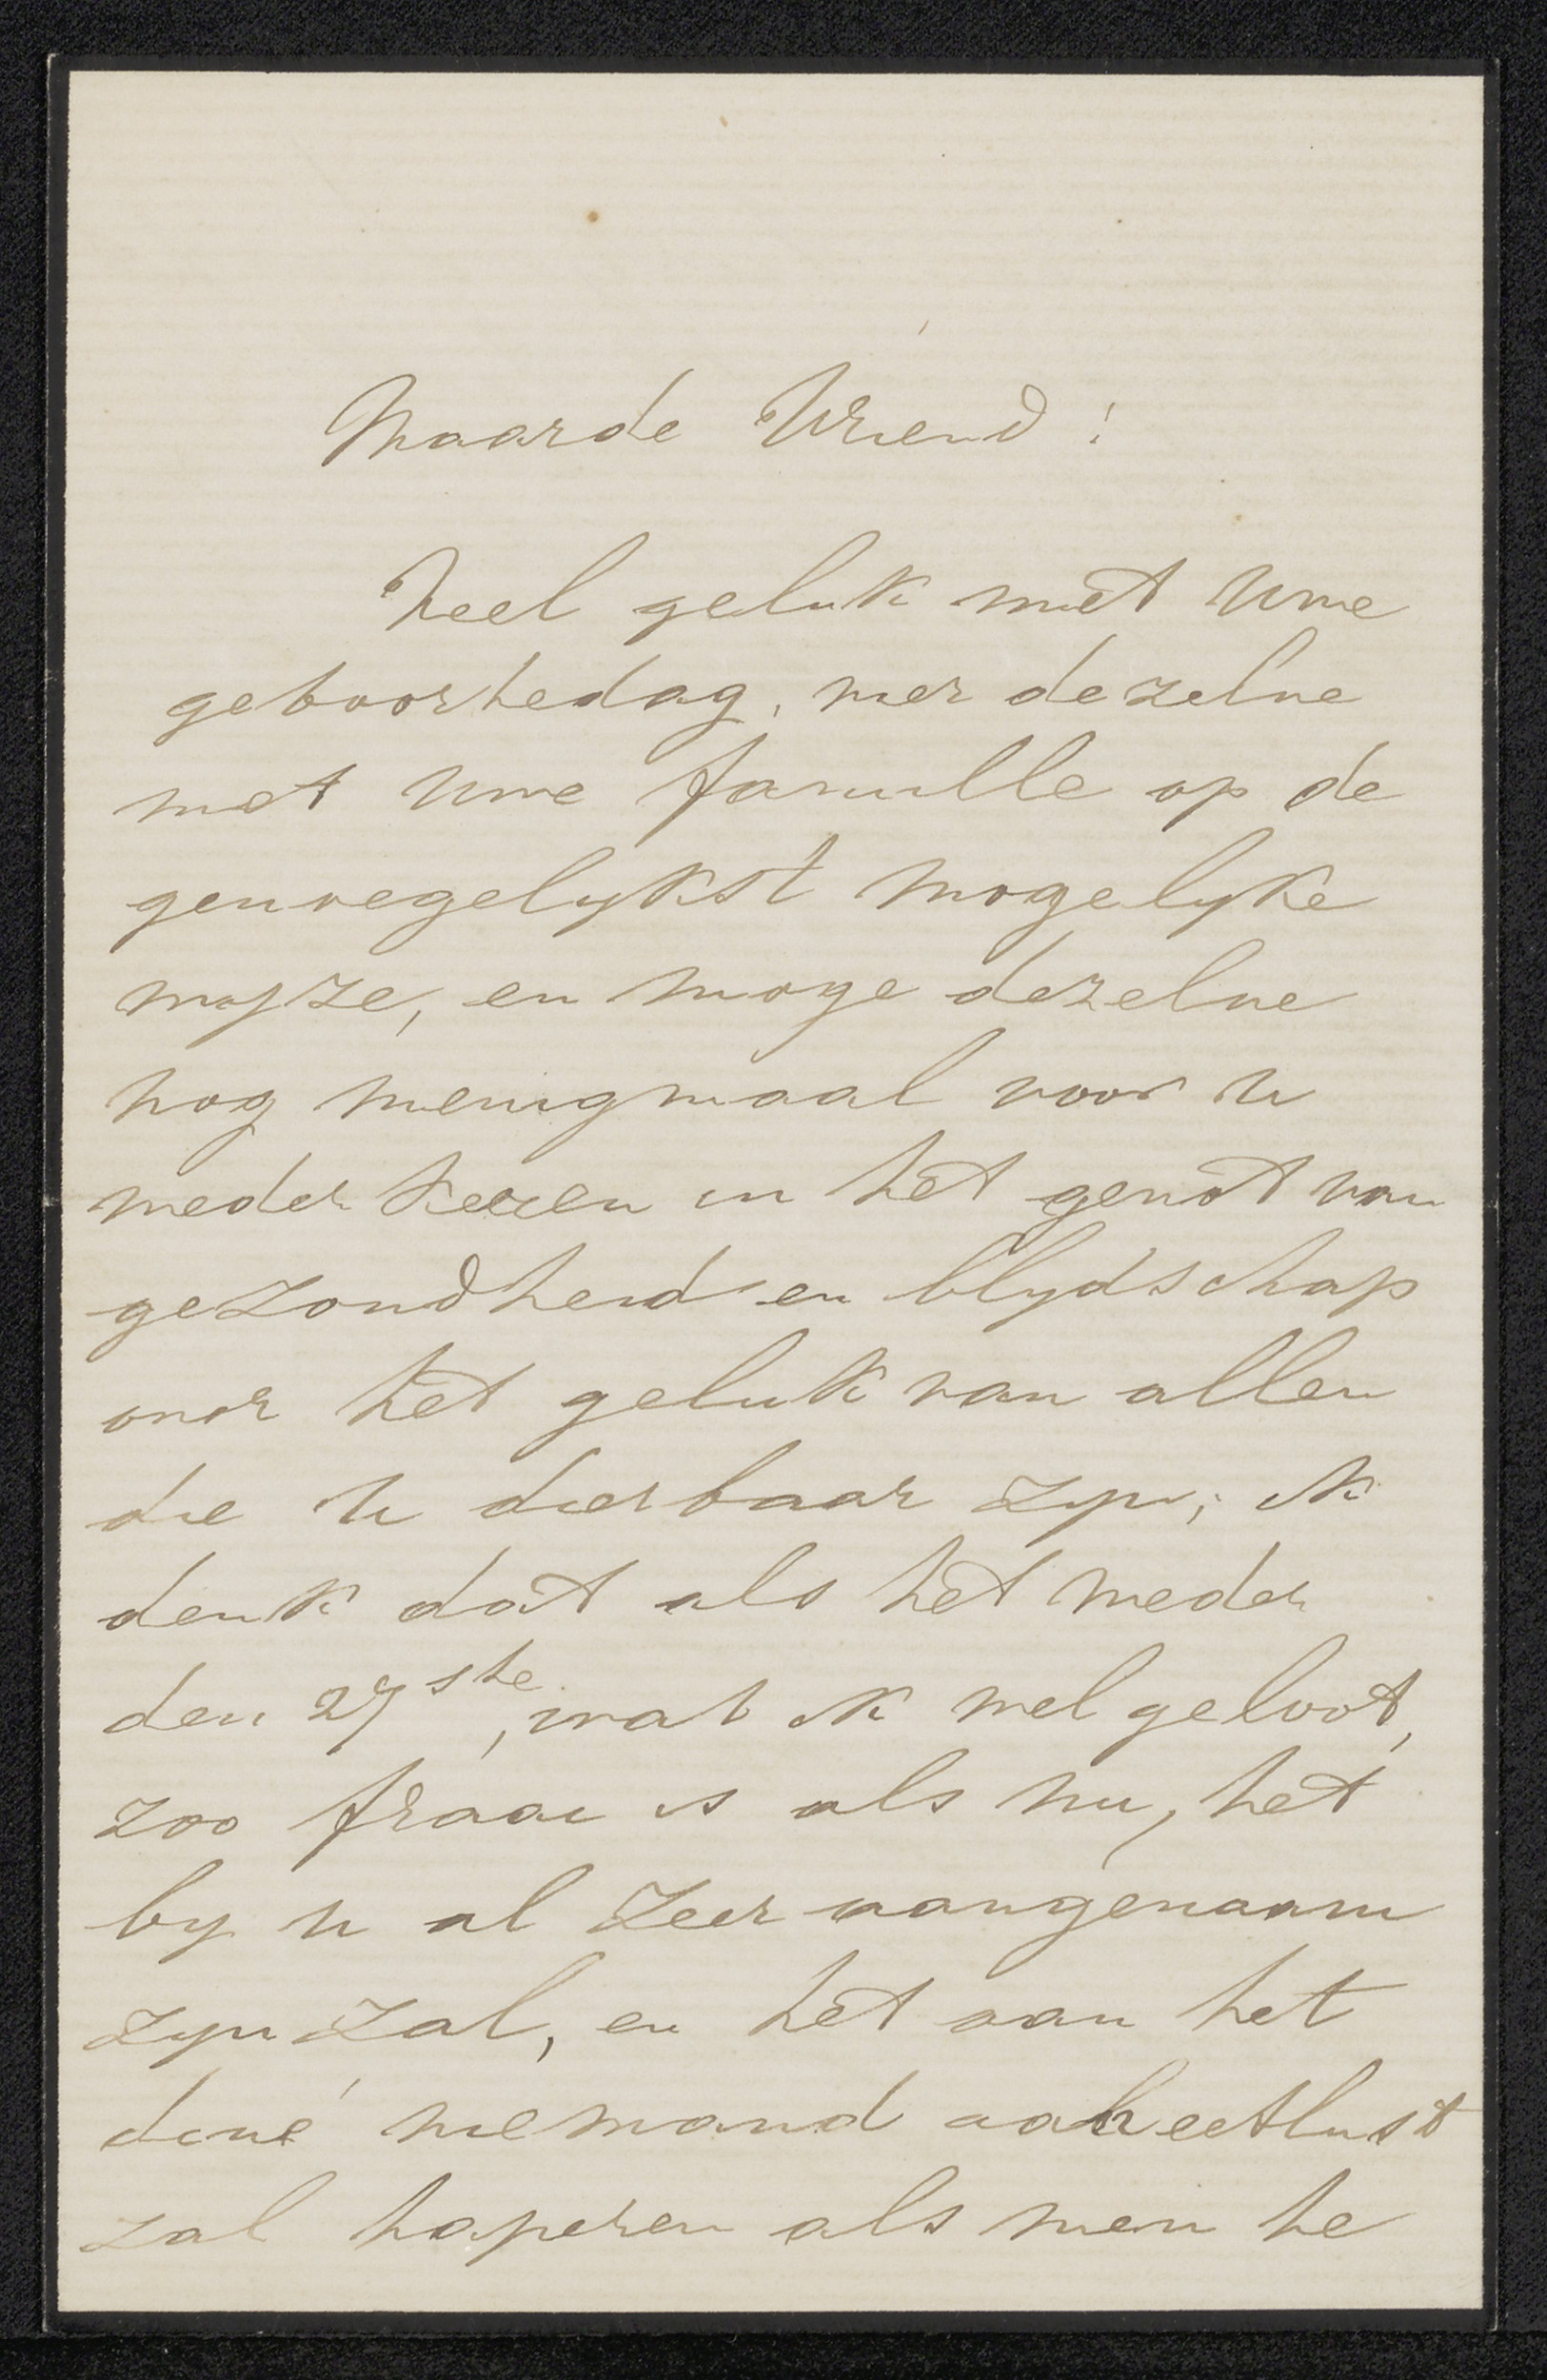 Waarde Vriend!
Veel geluk met Uwe
geboortedag, vier dezelve
met Uwe familie op de
genoegelykst mogelyke
wyze, en moge dezelve
nog menigmaal voor u
weder keeren in het genot van
gezondheid en blydschap
over het geluk van allen
die U dierbaar zyn; ik
denk dat als het weder
den 27ste, wat ik wel geloof,
zoo fraai is als nu, het
by u al zeer aangenaam
zyn zal, en het aan het
diné niemand aan eetlust
zal haperen als men te